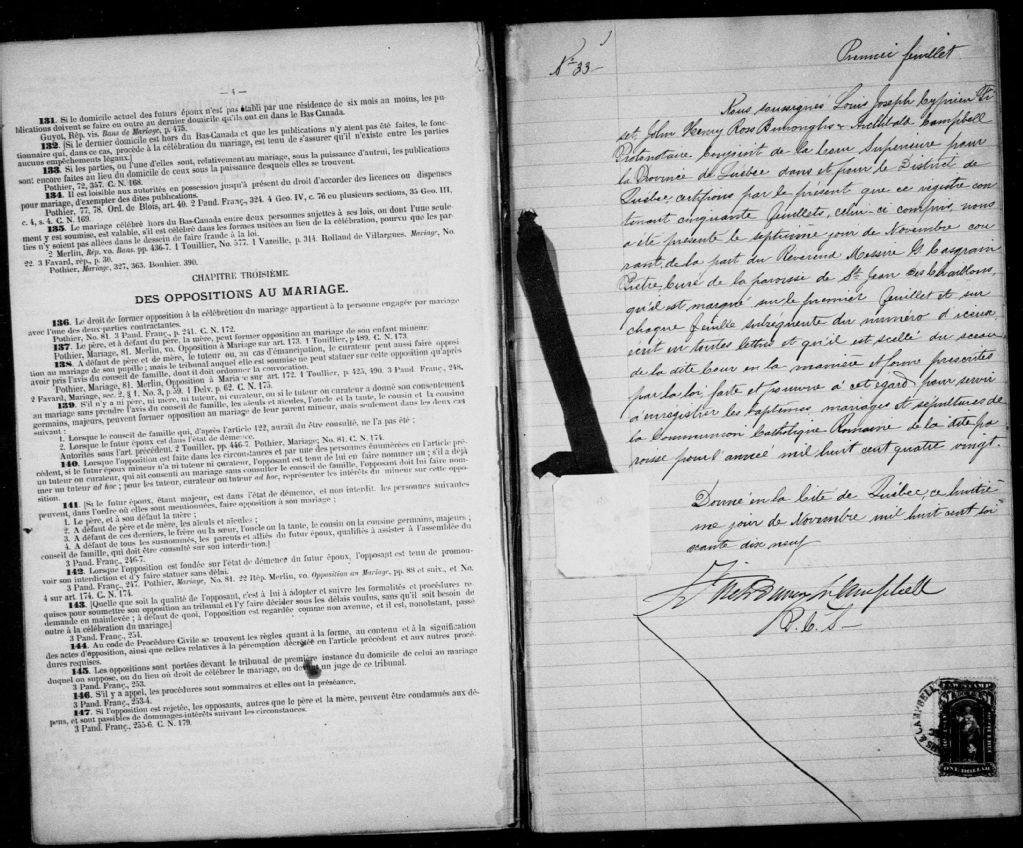 — 4 —
131. Si le domicile actuel des futurs époux n'est pas établi par une résidence de six mois au moins, les pu-
blications doivent se faire en outre au dernier domicile qu'ils ont eu dans le Bas-Canada.
Guyot, Rép. vis. Bans de Mariage, p. 475.
132. [Si le dernier domicile est hors du Bas-Canada et que les publications n'y aient pas été faites, le fonc-
tionnaire qui, dans ce cas, procède à la célébration du mariage, est tenu de s'assurer qu'il n'existe entre les parties
aucuns empêchements légaux.]
133. Si les parties, ou l'une d'elles sont, relativement au mariage, sous la puissance d'autrui, les publications
sont encore faites au lieu du domicile de ceux sous la puissance desquels elles se trouvent.
Pothier, 72, 357. C. N. 168.
134. Il est loisible aux autorités en possession jusqu'à présent du droit d'accorder des licences ou dispenses
pour mariage, d'exempter des dites publications.
Pothier, 77, 78. Ord. de Blois, art. 40. 2 Pand. Franç., 324. 4 Geo. IV, c. 76 en plusieurs sections, 35 Geo. III,
c. 4, s. 4. C. N. 169.
135. Le mariage célébré hors du Bas-Canada entre deux personnes sujettes à ses lois, ou dont l'une seule-
ment y est soumise, est valable, s'il est célébré dans les formes usitées au lieu de la célébration, pourvu que les par-
ties n'y soient pas allées dans le dessein de faire fraude à la loi.
2 Merlin, Rép. vo. Bans. pp. 436-7. 1 Toullier, No. 577. 1 Vazeille, p. 314. Rolland de Villargues. Mariage, No.
22. 3 Favard, rép., p. 30.
Pothier, Mariage, 327, 363. Bouhier. 390.
CHAPITRE TROISIÈME.
DES OPPOSITIONS AU MARIAGE.
136. Le droit de former opposition à la célébration du mariage appartient à la personne engagée par mariage
avec l'une des deux parties contractantes.
Pothier, No. 81. 3 Pand. Franç., p. 241. C. N. 172.
137. Le père, et à défaut du père, la mère, peut former opposition au mariage de son enfant mineur.
Pothier, Mariage, 81. Merlin, vo. Opposition à Mariage sur art. 173. 1 Toullier, p 489. C. N. 173.
138. A défaut de père et de mère, le tuteur ou, au cas d'émancipation, le curateur peut aussi faire opposi-
tion au mariage de son pupille; mais le tribunal auquel elle est soumise ne peut statuer sur cette opposition qu'après
avoir pris l'avis du conseil de famille, dont il doit ordonner la convocation.
Pothier, Mariage, 81. Merlin, Opposition à Mariage sur art. 172. 1 Toullier, p. 425, 490. 3 Pand. Franç., 248.
2 Favard, Mariage, sec. 2, § 1. No. 3, p. 59. 1 Delv. p. 62. C. N. 175.
139. S'il n'y a ni père, ni mère, ni tuteur, ni curateur, ou si le tuteur ou curateur a donné son consentement
au mariage sans prendre l'avis du conseil de famille, les aïeuls et aïeules, l'oncle et la tante, le cousin et la cousine
germains, majeurs, peuvent former opposition au mariage de leur parent mineur, mais seulement dans les deux cas
suivant :
1. Lorsque le conseil de famille qui, d'après l'article 122, aurait du être consulté, ne l'a pas été ;
2. Lorsque le futur époux est dans l'état de démence.
Autorités sous l'art. précédent. 2 Toullier, pp. 446-7. Pothier, Mariage; No. 81. C. N. 174.
140. Lorsque l'opposition est faite dans les circonstances et par une des personnes énumérées en l'article pré-
cédent, si le futur époux mineur n'a ni tuteur ni curateur, l'opposant est tenu de lui en faire nommer un ; s'il a déjà
un tuteur ou curateur, qui ait consenti au mariage sans consulter le conseil de famille, l'opposant doit lui faire nom-
mer un tuteur ad hoc ; pour les tuteur, curateur ou tuteur ad hoc, représenter les intérêts du mineur sur cette oppo-
sition.
141. [Si le futur époux, étant majeur, est dans l'état de démence, et non interdit. les personnes suivantes
peuvent, dans l'ordre où elles sont mentionnées, faire opposition à son mariage :
1. Le père, et à son défaut la mère ;
2. A défaut de père et de mère, les aïeuls et aïeules ;
3. A défaut de ces derniers, le frère ou la sœur, l'oncle ou la tante, le cousin ou la cousine germains, majeurs ;
4. A défaut de tous les susnommés, les parents et alliés du futur époux, qualifiés à assister à l'assemblée du
conseil de famille, qui doit être consulté sur son interdiction.]
3 Pand. Franç., 246-7.
142. Lorsque l'opposition est fondée sur l'état de démence du futur époux, l'opposant est tenu de promou-
voir son interdiction et d'y faire statuer sans délai.
3 Pand. Franç., 247. Pothier, Mariage, No. 81. 22 Rép. Merlin, vo. Opposition au Mariage, pp. 88 et suiv., et No.
4 sur art. 174. C. N. 174.
143. [Quelque soit la qualité de l'opposant, c'est à lui à adopter et suivre les formalités et procédures re-
quises pour soumettre son opposition au tribunal et l'y faire décider sous les délais voulus, sans qu'il soit besoin de
demande en mainlevée ; à défaut de quoi, l'opposition est regardée comme non avenue, et il est, nonobstant, passé
outre à la célébration du mariage.]
3 Pand. Franç., 254.
144. Au code de Procédure Civile se trouvent les règles quant à la forme, au contenu et à la signification
des actes d'opposition, ainsi que celles relatives à la péremption décrétée en l'article précédent et aux autres procé-
dures requises.
145. Les oppositions sont portées devant le tribunal de première instance du domicile de celui au mariage
duquel on suppose, ou du lieu où doit de célébrer le mariage, ou devant un juge de ce tribunal.
3 Pand. Franç., 253.
146. S'il y a appel, les procédures sont sommaires et elles ont la préséance.
3 Pand. Franç., 253-4.
147. Si l'opposition est rejetée, les opposants, autres que le père et la mère, peuvent être condamnés aux dé-
pens, et sont passibles de dommages-intérêts suivant les circonstances.
3 Pand. Franç., 255-6. C. N. 179.
No 33
Premier feuillet
Nous soussignés Louis Joseph Cyprien Fi
set, John Henry Ross Burroughs & Archibald Campbell
Protonotaire Conjoint de la Cour Supérieure pour
la Province de Québec dans et pour le District de
Québec, certifions par le présent que ce régistre con
tenant cinquante feuillets, celui-ci compris nous
a été présenté le septième jour de Novembre cou
rant, de la part du Révérend Messire G. Casgrain
Prêtre, Curé de la paroisse de St Jean des Chaillons,
qu'il est marqué sur le premier feuillet et sur
chaque feuillet subséquente du numéro d'iceux,
écrit en toutes lettres et qu'il est scellé du sceau
de la dite Cour en la manière et forme prescrites
par la loi faite et pourvue à cet égard pour servir
à enregistrer les baptêmes mariages et sépultures de
la Communion Catholique Romaine de la dite pa
roisse pour l'année mil huit cent quatre vingt
Donné en la Cité de Québec, ce huitiè
me jour de Novembre mil huit cent soi
xante dix neuf
Campbell
P. C. S.
ONE DOLLAR